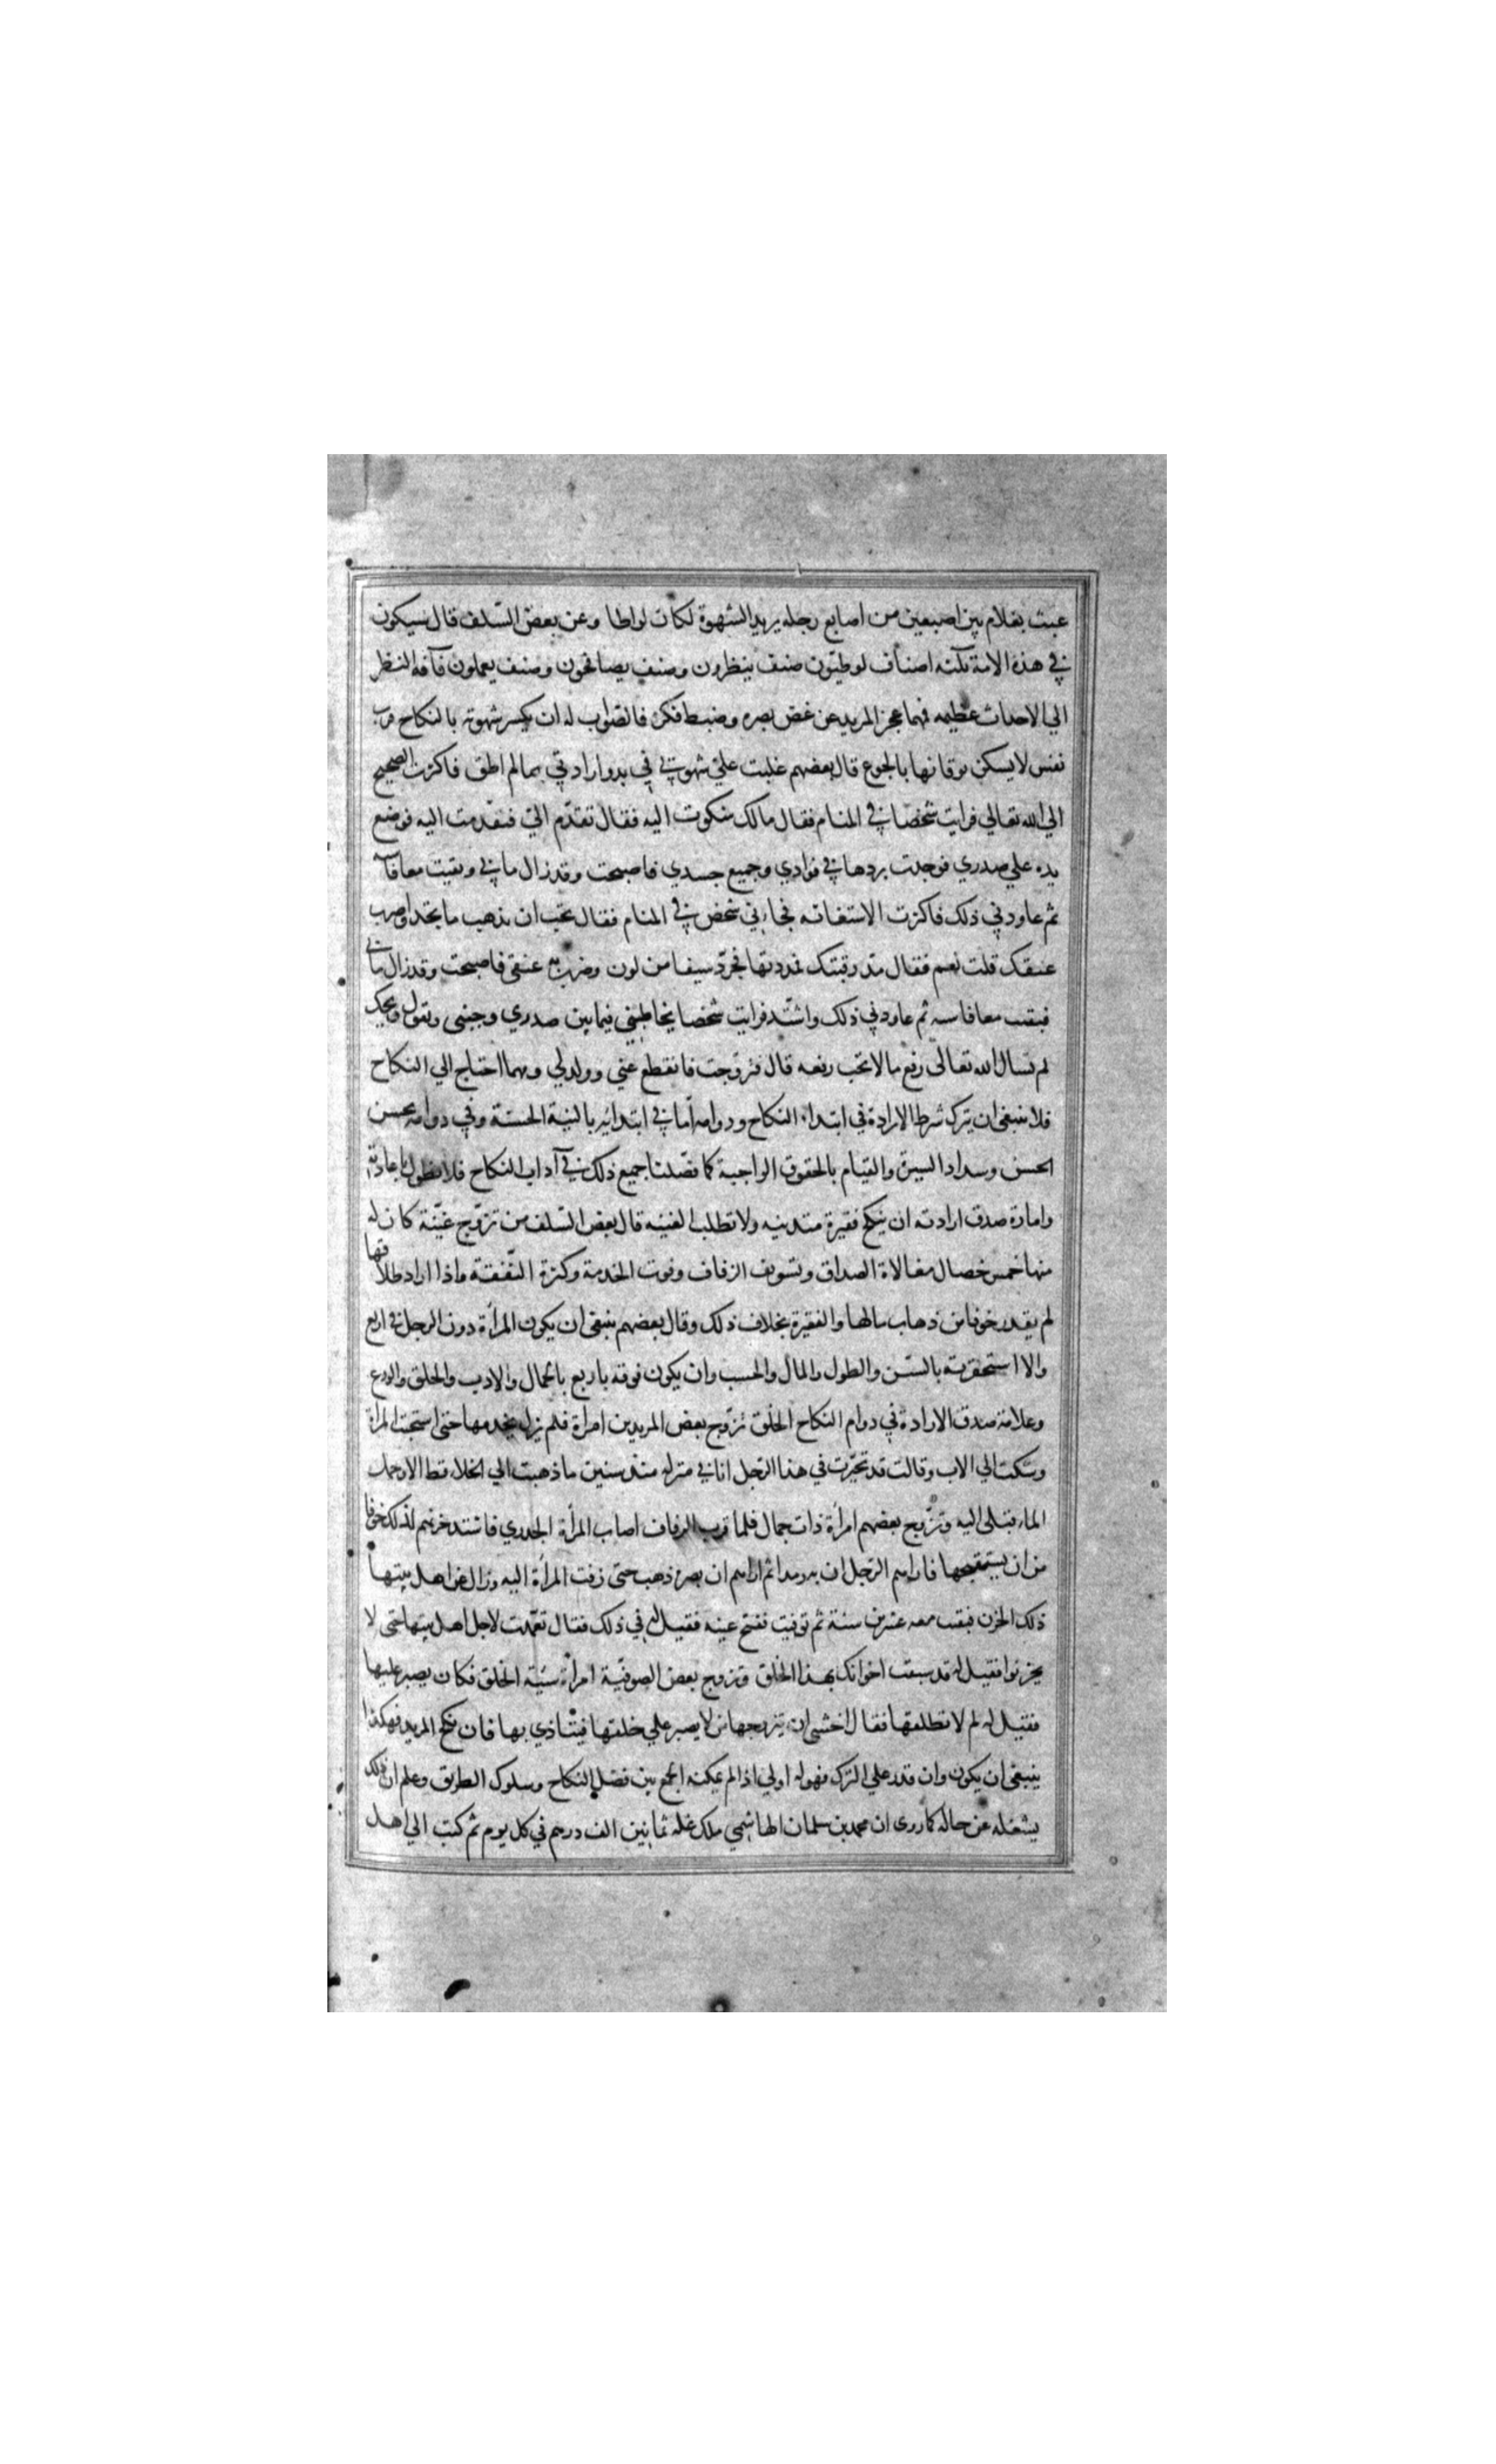 عبث بغلام بين اصبعين من اصابع رجله يريد الشهوة لكان لواطا وعن بعض السّلف قال سيكون
في هذه الامة ثلثه اصناف لوطيّون صنف ينظرون وصنف يصافحون وصنف يعملون فآفة النظر
الي الاحداث عظيمه فمهما عجز المريد عن غض بصره وضبط فكره فالصّواب له ان يكسر شهوته بالنكاح فرب
نفس لا يسكن توقانها بالجوع قال بعضهم غلبت عليّ شهوتي في بدو ارادتي بمالم اطق فاكثرت الضجيج
الي الله تعالي فرايت شخصا في المنام فقال مالك شكوت اليه فقال تقدّم اليّ فتقدّمت اليه فوضع
يده علي صدري فوجدت بردها في فوادي وجميع جسدي فاصبحت وقد زال مابي وبقيت معافا سنه
ثم عاودني ذلك فاكثرت الاستغاثه فجاءني شخص في المنام فقال تحب ان يذهب ما تجد واضرب
عنقك قلت نعم فقال مدّ رقبتك فمددتها فجرّد سيفا من نور وضرب به عنقي فاصبحت وقد زال مابي
فبقيت معافا سنه ثم عاودني ذلك واشتدّ فرايت شخصا يخاطبني فيما بين صدري وجنبي ويقول ويحك
لم تسال الله تعالى رفع مالا تحب رفعه قال فتزوجت فانقطع عني وولد لي ومهما احتاج الي النكاح
فلا ينبغي ان يترك شرط الارادة في ابتداء النكاح ودوامه امّا في ابتدائه بالنية الحسنة وفي دوامه بحسن
الحسن وسداد السيرة والقيام بالحقوق الواجبة كما فصّلنا جميع ذلك في آداب النكاح فلا نطول باعادته
وامارة صدق ارادته ان ينكح فقيرة متدينه ولا تطلب الغنيه قال بعض السّلف من تزوّج غنيّة كان له
منها خمس خصال مغالاة الصداق وتسويف الزفاف وفوت الخدمة وكثرة النّفقة واذا اراد طلاقها
لم يقدر خوفا من ذهاب مالها والفقيرة بخلاف ذلك وقال بعضهم ينبغي ان يكون المرأة دون الرجل في اربع
والا استحقرته بالسّن والطول والمال والحسب وان يكون فوقه باربع بالجمال والادب والخلق والورع
وعلامة صدق الارادة في دوام النكاح الخلق تزوّج بعض المريدين امراة فلم يزل يخدمها حتى استحيت المراة
وشكت الي الاب وقالت قد تحيّرت في هذا الرّجل انا في منزله منذ سنين ما ذهبت الي الخلاء قط الا وحمل
الماء قبلي اليه وتزّوج بعضهم امرأة ذات جمال فلما قرب الزفاف اصاب المرأة الجدري فاشتد حزنهم لذلك خوفا
من ان يستقبحها فاراهم الرّجل ان به رمدا ثم اراهم ان بصره ذهب حتى زفت المرأة اليه وزال عن اهل بيتها
ذلك الحزن فبقيت معه عشرين سنة ثم توفيت ففتح عينه فقيل له في ذلك فقال تعمّدت لاجل اهل بيتها حتى لا
يحزنوا فقيل له قد سبقت اخوانك بهذا الخلق وتزوج بعض الصوفيّة امرأة سيّة الخلق فكان يصبر عليها
فقيل له لم لا تطلقها فقال اخشى ان يتزوجها من لا يصبر علي خلقها فيتاذي بها فان نكح المريد فهكذا
ينبغي ان يكون وان قدر علي الترك فهو له اولي اذا لم يمكنه الجمع بين فضل النكاح وسلوك الطريق وعلم ان ذلك
يشغله عن حاله كما روى ان محمد بن سلمان الهاشمي ملك غله ثمانين الف درهم في كل يوم ثم كتب الي اهل